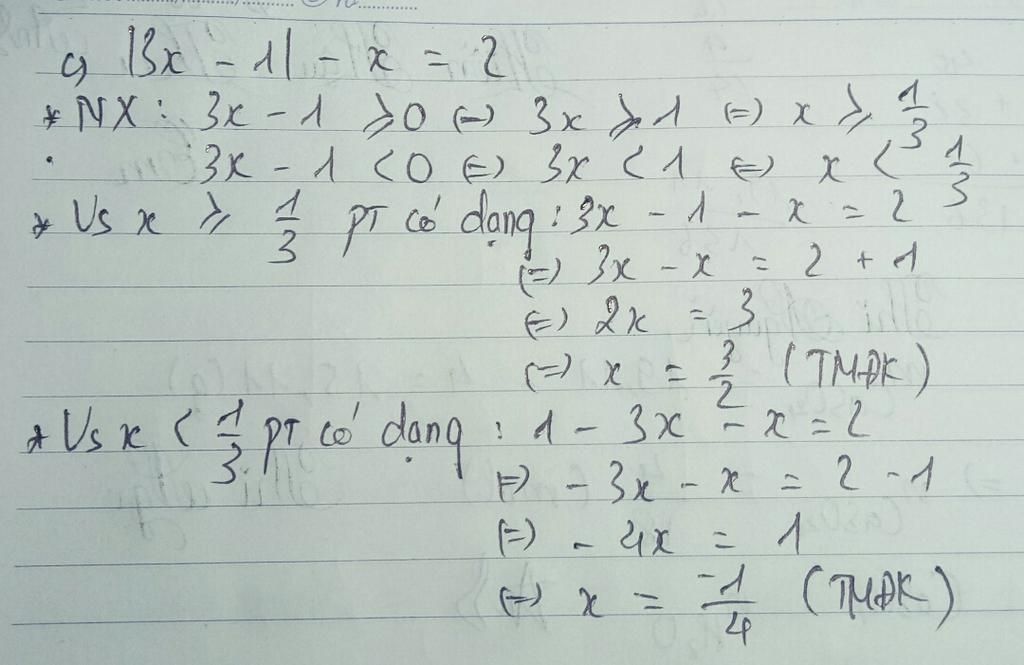 c, |3x - 1| - x = 2
* NX: 3x - 1 ⩾ 0 (=) 3x ⩾ 1 (=) x ⩾ 1/3
. 3x - 1 < 0 (=) 3x < 1 (=) x < 1/3
* Vs x ⩾ 1/3 PT có dạng: 3x - 1 - x = 2
(=) 3x - x = 2 + 1
(=) 2x = 3
(=) x = 3/2 (TMĐK)
* Vs x < 1/3 PT có dạng: 1 - 3x - x = 2
(=) - 3x - x = 2 - 1
(=) - 4x = 1
(=) x = -1/4 (TMĐK)